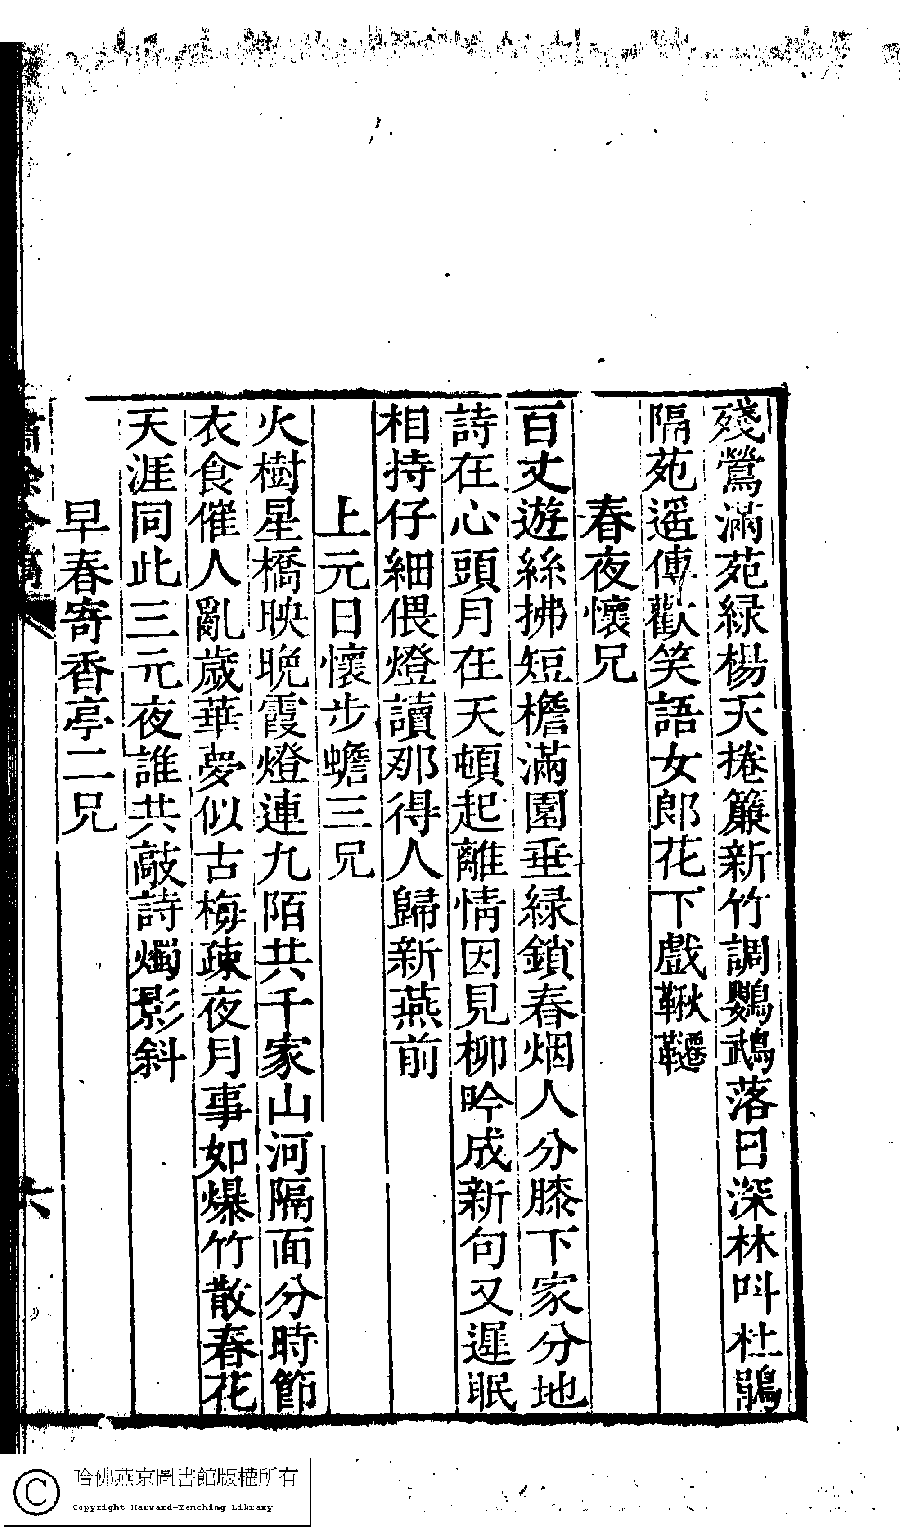 殘鶯滿苑緑楊天捲簾新竹調鸚鵡落日深林叫杜鵑
隔苑遥傳歡笑語女郎花下戲鞦韆
春夜懷兄
百丈遊絲拂短檐滿園垂緑鎖春烟人分膝下家分地
詩在心頭月在天頓起離情因見柳吟成新句又遲眠
相持仔細偎燈讀那得人歸新燕前
上元日懷步蟾三兄
火樹星橋映晩霞燈連九陌共千家山河隔面分時節
衣食催人亂歲華夢似古梅疎夜月事如爆竹散春花
天涯同此三元夜誰共敲詩燭影斜
早春寄香亭二兄
六
哈佛燕京圖書館版權所有
Copyright Harvard-Yenching Library